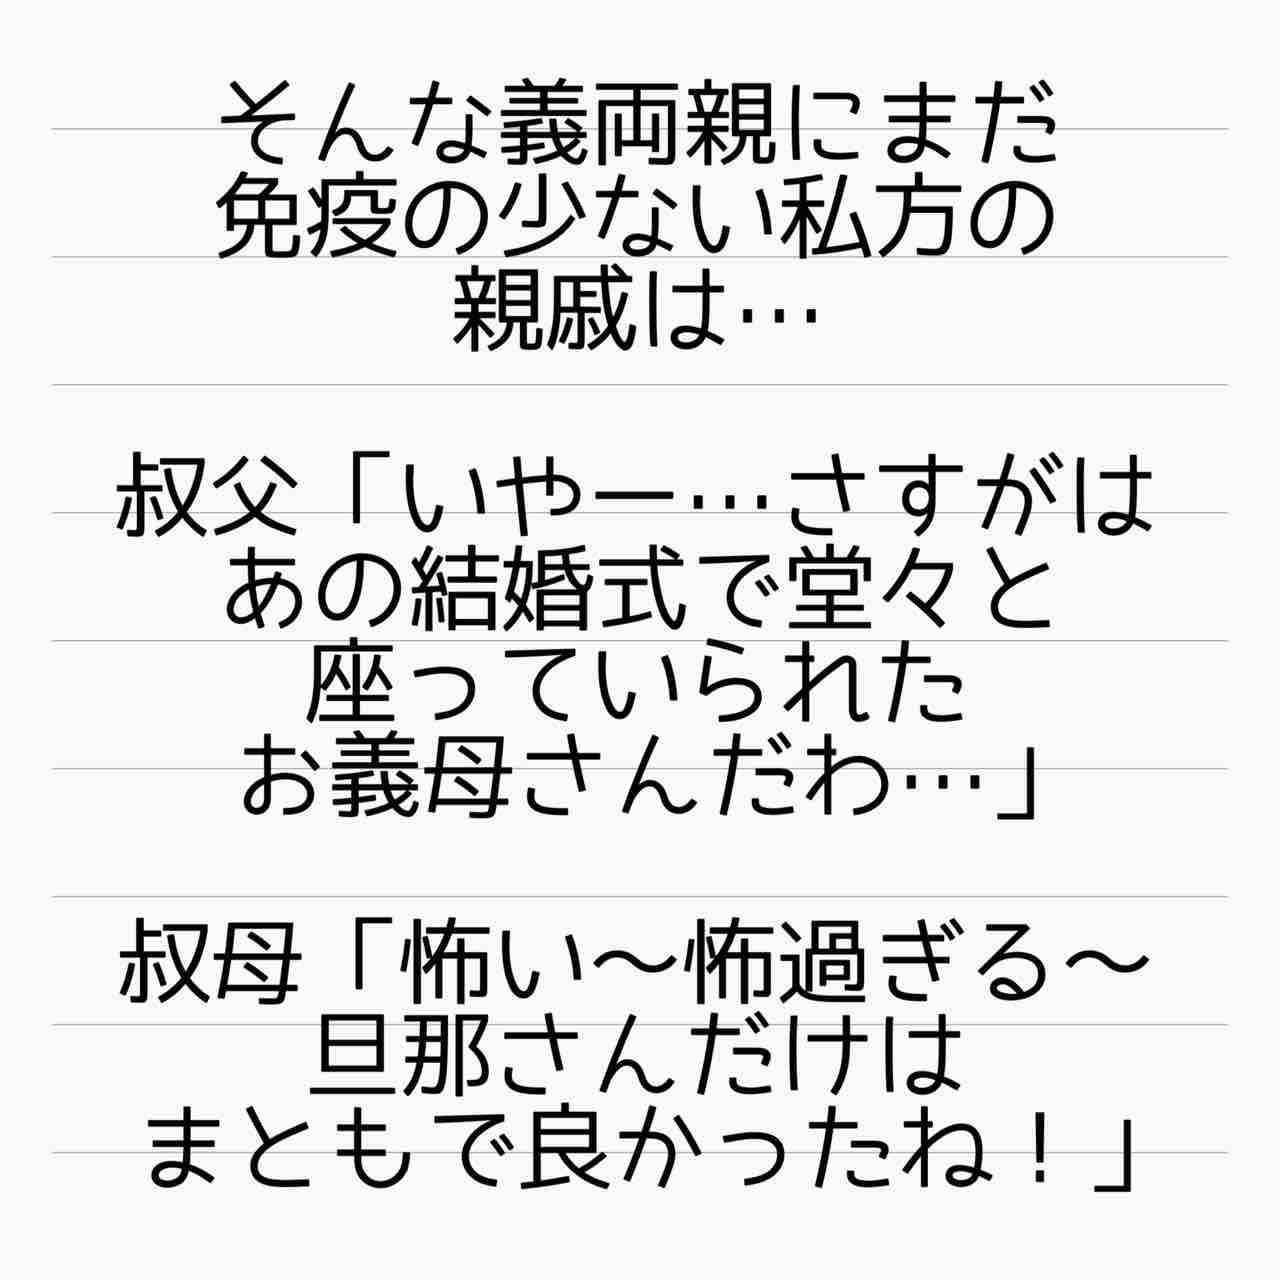 そんな義両親にまだ
免疫の少ない私方の
親戚は…
叔父「いやー…さすがは
あの結婚式で堂々と
座っていられた
お義母さんだわ…」
叔母「怖い〜怖過ぎる〜
旦那さんだけは
まともで良かったね！」